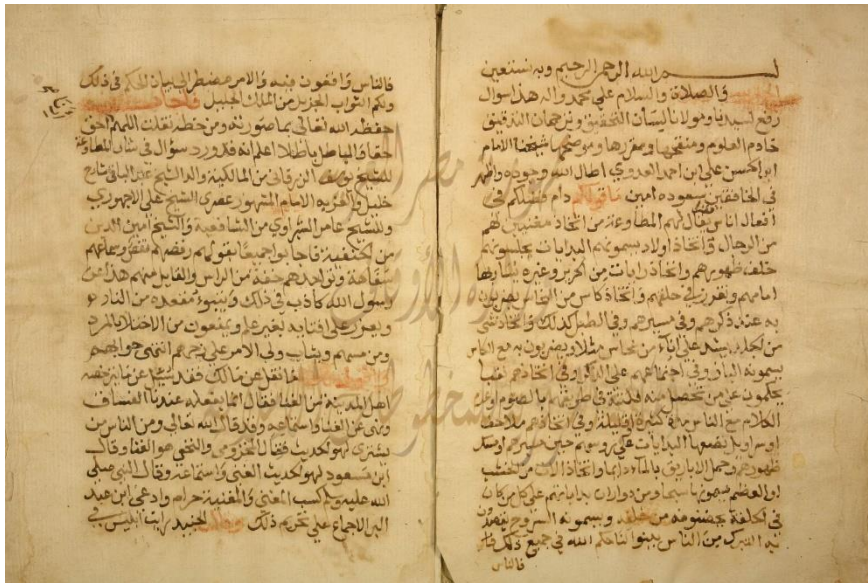 بسم الله الرحمن الرحيم وبه نستعين
والصلاة والسلام علي محمد واله هذا سوال
رفع لسيدنا ومولانا لسان التحقيق وترجمان التدقيق
خادم العلوم ومنقحها ومقررها وموضحها شيخنا الامام
ابو الحسن علي ابن احمد العدوي اطال الله وجوده واظهر
في الخافقين سعوده امين ما قولكم دام فضلكم في
افعال اناس يقال لهم المطاوعة من اتخاذ مغنيين لهم
من الرجال واتخاذ اولاد يسمونهم البدايات يجلسونهم
خلف ظهورهم واتخاذ رايات من الحرير وغيره
امامهم واتخاذ كاس من النحاس يضربون
به عند ذكرهم وفي مسيرهم وفي الطبل كذلك واتخاذ شي
من الجلد علي اناء من نحاس مثلا ويضربون به مع الكاس
يسمونه الباز وفي اجتماعهم علي الذكر وفي اتخاذهم نقبا
يحكمون عن من منه في طريقهم بالصوم وعدم
الكلام مع الناس مدة كثيرة او قليلة وفي اتخاذهم
علي روسهم حين مسيرهم
ظهورهم وحمل الاباريق بالماء دايما واتخاذ الات من الخشب
او العظم ومن دوران بداياتهم علي كل من كان
في الحلقة من خلفه ويسمونه
من الناس بينوا لنا حكم الله في جميع ذلك
فالناس
فالناس واقعون فيه والامر مضطر الي بيان الحكم في ذلك
ولكم الثواب الجزيل من الملك الجليل
حفظه الله تعالي بما صورته ومن خطه نقلت اللهم الحق
حقا والباطل باطلا اعلم انه قد ورد سؤال في شان المطاوعة
للشيخ الزرقاني من المالكية والد الشيخ عبد الباقي شارح
خليل الامام المشهور الشيخ علي الاجهوري
وللشيخ عامر الشبراوي من الشافعية والشيخ امين الدين
من الحنفية فاجابوا جميعا بقولهم رقصهم نقص وسماعهم
سفاهة وتواجدهم خفة من الراس والقايل منهم هذا من
رسول الله كاذب في ذلك وليتبوء مقعده من النار
ويعزر علي افتايه بغير علم ويمنعون من الاختلا بالمرد
ومن مسهم ويثاب ولي الامر علي زجرهم انتهي جوابهم
ما نقل عن مالك فقد سيل عن ما يرخصه
اهل المدينة من الغنا فقال انما يفعله عندنا الفساق
ونهي عن الغنا واستماعه وقد قال الله تعالي ومن الناس من
يشتري لهو الحديث فقال المخزومي والنخعي هو الغنا وقال
ابن مسعود لهو الحديث الغنى واستماعه وقال النبي صلي
الله عليه وسلم كسب المغني والمغنية حرام وادعي ابن عبد
البر الاجماع علي تحريم ذلك الجنيد رايت ابليس في